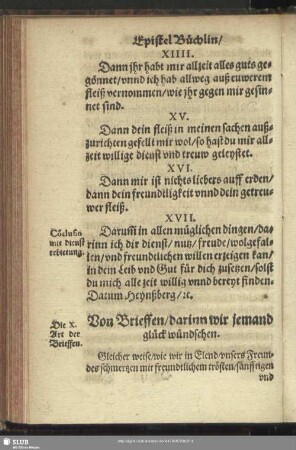 Epistel Büchlin/
XIIII.
Dann jhr habt mir allzeit alles guts ge-
gönnet/vnnd ich hab allweg auß euwerem
fleiß vernommen/wie jhr gegen mir gesin-
net sind.
XV.
Dann dein fleiß in meinen sachen auß-
zurichten gefellt mir wol/so hast du mir all-
zeit willige dienst vnd treuw geleystet.
XVI.
Dann mir ist nichts liebers auff erden/
dann dein freundtligkeit vnnd dein getreu-
wer fleiß.
XVII.
Cōclusio
mit dienst
erbietung.
Darumb in allen müglichen dingen/da-
rinn ich dir dienst/nutz/freude/wolgefal-
len/vnd freundtlichen willen erzeigen kan/
in dem Leib vnd Gut für dich zusetzen/solst
du mich alle zeit willig vnnd bereyt finden.
Datum Heynßberg/ꝛc.
Die X.
Art der
Brieffen.
Von Brieffen/darinn wir jemand
glück wündschen.
Gleicher weise/wie wir in Elend vnsers Freun-
des schmertzen mit freundtlichem trösten/sänfftigen
vnd
SLUB